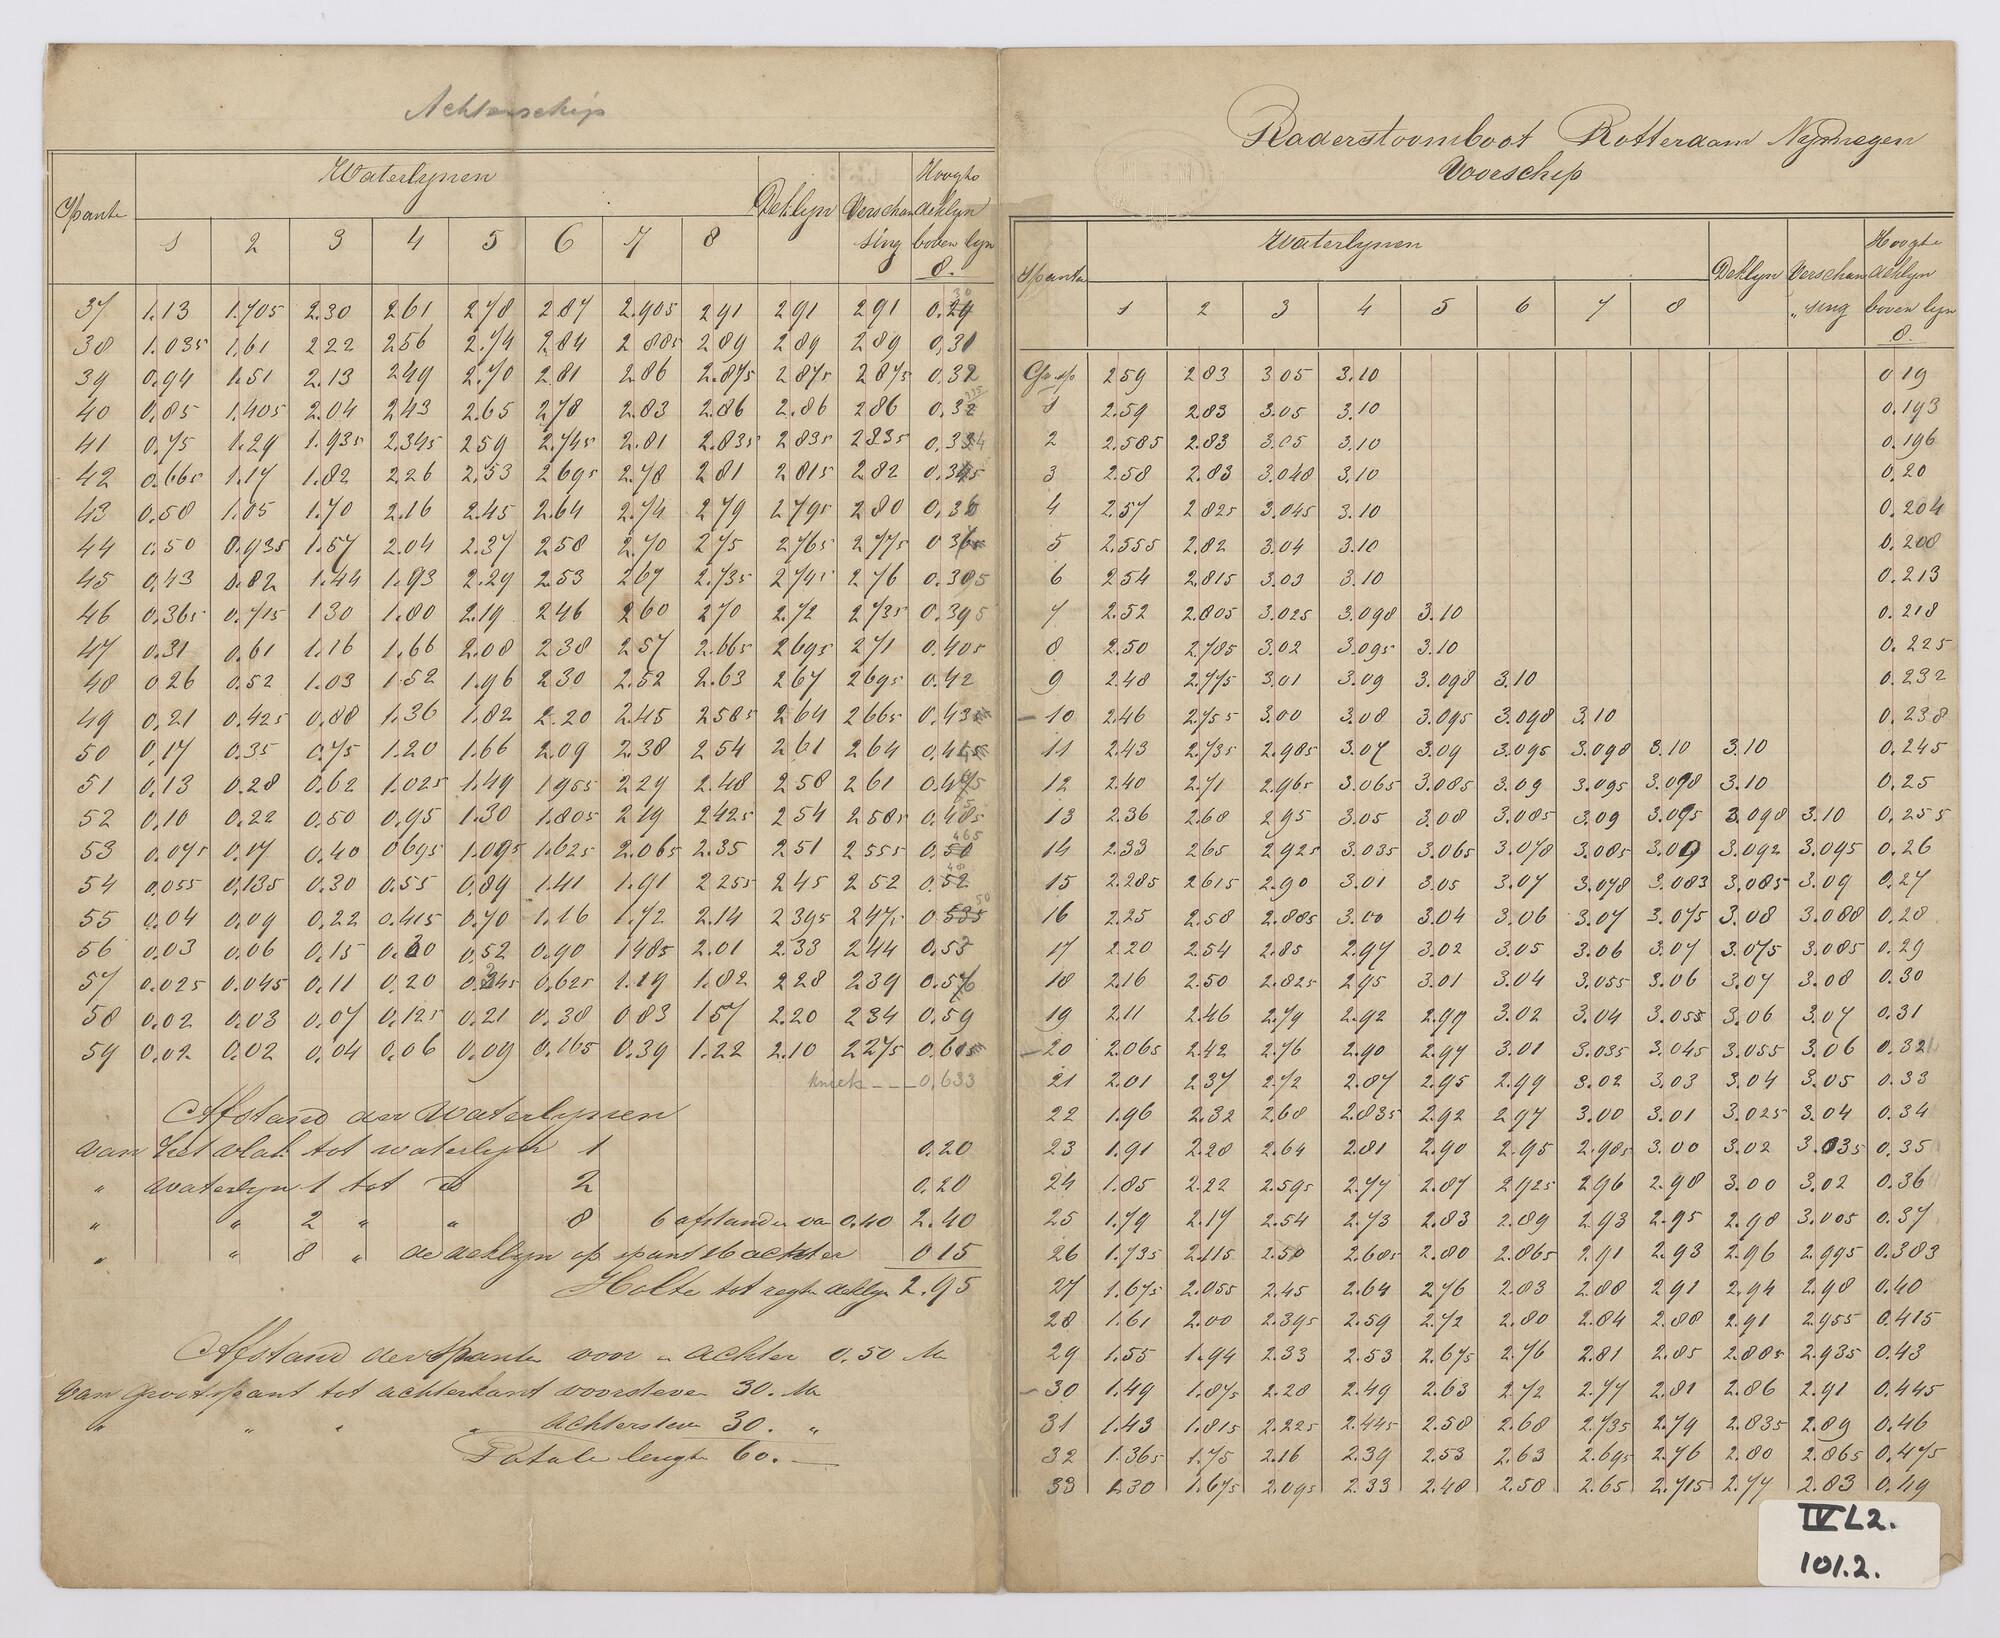 Achterschip
Spante Waterlynen Deklyn Verschansing Hoogte deklyn boven lyn 8.
1 2 3 4 5 6 7 8
37 1.13 1.705 2.30 2.61 2.78 2.87 2.905 2.91 2.91 2.91
38 1.035 1.61 2.22 2.56 2.74 2.84 2.885 2.89 2.89 2.89 0.31
39 0.94 1.51 2.13 2.49 2.70 2.81 2.86 2.875 2.875 2.875 0.32
40 0.85 1.405 2.04 2.43 2.65 2.78 2.83 2.86 2.86 2.86
41 0.75 1.29 1.935 2.345 2.59 2.745 2.81 2.835 2.835 2.835
42 0.665 1.17 1.82 2.26 2.53 2.695 2.78 2.81 2.815 2.82
43 0.58 1.05 1.70 2.16 2.45 2.64 2.74 2.79 2.795 2.80 0.36
44 0.50 0.935 1.57 2.04 2.37 2.58 2.70 2.75 2.765 2.775
45 0.43 0.82 1.44 1.93 2.29 2.53 2.67 2.735 2.745 2.76
46 0.365 0.715 1.30 1.80 2.19 2.46 2.60 2.70 2.72 2.735 0.395
47 0.31 0.61 1.16 1.66 2.08 2.38 2.57 2.665 2.695 2.71 0.405
48 0.26 0.52 1.03 1.52 1.96 2.30 2.52 2.63 2.67 2.695 0.42
49 0.21 0.425 0.88 1.36 1.82 2.20 2.45 2.585 2.64 2.665
50 0.17 0.35 0.75 1.20 1.66 2.09 2.38 2.54 2.61 2.64
51 0.13 0.28 0.62 1.025 1.49 1.955 2.29 2.48 2.58 2.61
52 0.10 0.22 0.50 0.95 1.30 1.805 2.19 2.425 2.54 2.585
53 0.075 0.17 0.40 0.695 1.095 1.625 2.065 2.35 2.51 2.555
54 0.055 0.135 0.30 0.55 0.89 1.41 1.91 2.255 2.45 2.52 0.52
55 0.04 0.09 0.22 0.415 0.70 1.16 1.72 2.14 2.395 2.475 0.535
56 0.03 0.06 0.15 0.30 0.52 0.90 1.485 2.01 2.33 2.44
57 0.025 0.045 0.11 0.20 0.345 0.625 1.19 1.82 2.28 2.39
58 0.02 0.03 0.07 0.125 0.21 0.38 0.83 1.57 2.20 2.34 0.59
59 0.02 0.02 0.04 0.06 0.09 0.165 0.39 1.22 2.10 2.275
kniek --- 0.633
Afstand der Waterlynen
van het vlak tot waterlyn 1 0.20
" waterlyn 1 tot do 2 0.20
" " 2 " " 8 6 afstanden van 0.40 2.40
" " 8 " de deklyn op spant 16 achter 0.15
Holte tot regte deklyn 2.95
Afstand der Spanten voor en achter 0.50 M
Van grootspant tot achterkant voorsteven 30. M
" " " " achtersteven 30. "
Totale lengte 60.—
Raderstoomboot Rotterdam Nymegen
Voorschip
Spanten Waterlynen Deklyn Verschan „sing Hoogte deklyn boven lyn 8.
1 2 3 4 5 6 7 8
Gr. sp 2.59 2.83 3.05 3.10 0.19
1 2.59 2.83 3.05 3.10 0.193
2 2.585 2.83 3.05 3.10 0.196
3 2.58 2.83 3.048 3.10 0.20
4 2.57 2.825 3.045 3.10 0.204
5 2.555 2.82 3.04 3.10 0.208
6 2.54 2.815 3.03 3.10 0.213
7 2.52 2.805 3.025 3.098 3.10 0.218
8 2.50 2.785 3.02 3.095 3.10 0.225
9 2.48 2.775 3.01 3.09 3.098 3.10 0.232
10 2.46 2.755 3.00 3.08 3.095 3.098 3.10 0.238
11 2.43 2.735 2.985 3.07 3.09 3.095 3.098 3.10 3.10 0.245
12 2.40 2.71 2.965 3.065 3.085 3.09 3.095 3.098 3.10 0.25
13 2.36 2.68 2.95 3.05 3.08 3.085 3.09 3.095 3.098 3.10 0.255
14 2.33 2.65 2.925 3.035 3.065 3.078 3.085 3.09 3.092 3.095 0.26
15 2.285 2.615 2.90 3.01 3.05 3.07 3.078 3.083 3.085 3.09 0.27
16 2.25 2.58 2.885 3.00 3.04 3.06 3.07 3.075 3.08 3.088 0.28
17 2.20 2.54 2.85 2.97 3.02 3.05 3.06 3.07 3.075 3.085 0.29
18 2.16 2.50 2.825 2.95 3.01 3.04 3.055 3.06 3.07 3.08 0.30
19 2.11 2.46 2.79 2.92 2.99 3.02 3.04 3.055 3.06 3.07 0.31
20 2.065 2.42 2.76 2.90 2.97 3.01 3.035 3.045 3.055 3.06 0.32
21 2.01 2.37 2.72 2.87 2.95 2.99 3.02 3.03 3.04 3.05 0.33
22 1.96 2.32 2.68 2.835 2.92 2.97 3.00 3.01 3.025 3.04 0.34
23 1.91 2.28 2.64 2.81 2.90 2.95 2.985 3.00 3.02 3.035 0.35
24 1.85 2.22 2.595 2.77 2.87 2.925 2.96 2.98 3.00 3.02 0.36
25 1.79 2.17 2.54 2.73 2.83 2.89 2.93 2.95 2.98 3.005 0.37
26 1.735 2.115 2.50 2.685 2.80 2.865 2.91 2.93 2.96 2.995 0.383
27 1.675 2.055 2.45 2.64 2.76 2.83 2.88 2.91 2.94 2.98 0.40
28 1.61 2.00 2.395 2.59 2.72 2.80 2.84 2.88 2.91 2.955 0.415
29 1.55 1.94 2.33 2.53 2.675 2.76 2.81 2.85 2.885 2.935 0.43
30 1.49 1.875 2.28 2.49 2.63 2.72 2.77 2.81 2.86 2.91 0.445
31 1.43 1.815 2.225 2.445 2.58 2.68 2.735 2.79 2.835 2.89 0.46
32 1.365 1.75 2.16 2.39 2.53 2.63 2.695 2.76 2.80 2.865 0.475
33 1.30 1.675 2.095 2.33 2.48 2.58 2.65 2.715 2.77 2.83 0.49
IV L2.
101.2.